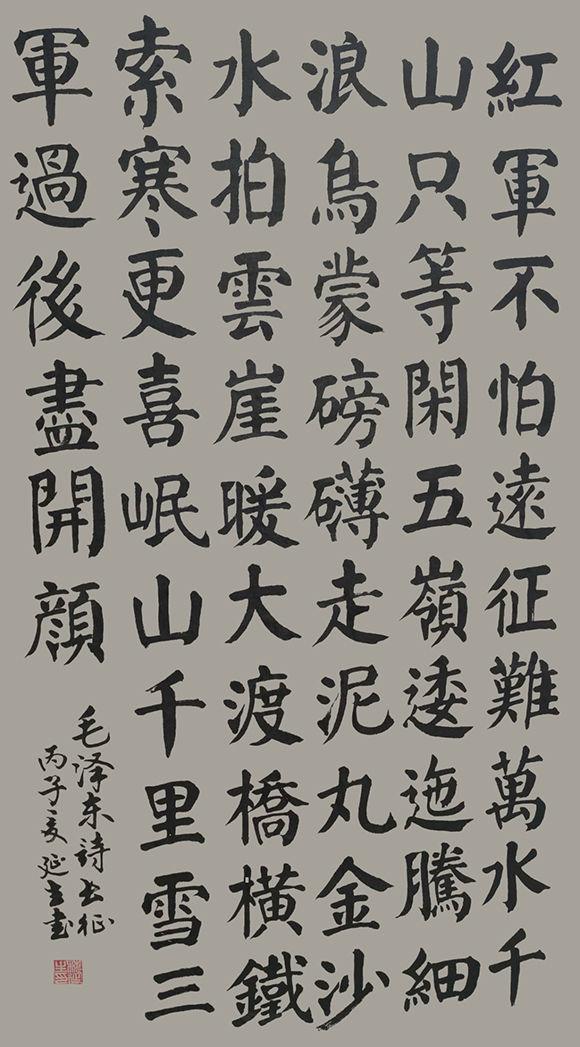 紅軍不怕遠征難萬水千
山只等閑五嶺逶迤騰細
浪烏蒙磅礴走泥丸金沙
水拍雲崖暖大渡橋橫鐵
索寒更喜岷山千里雪三
軍過後盡開顏
毛泽东詩长征
丙子夏延书